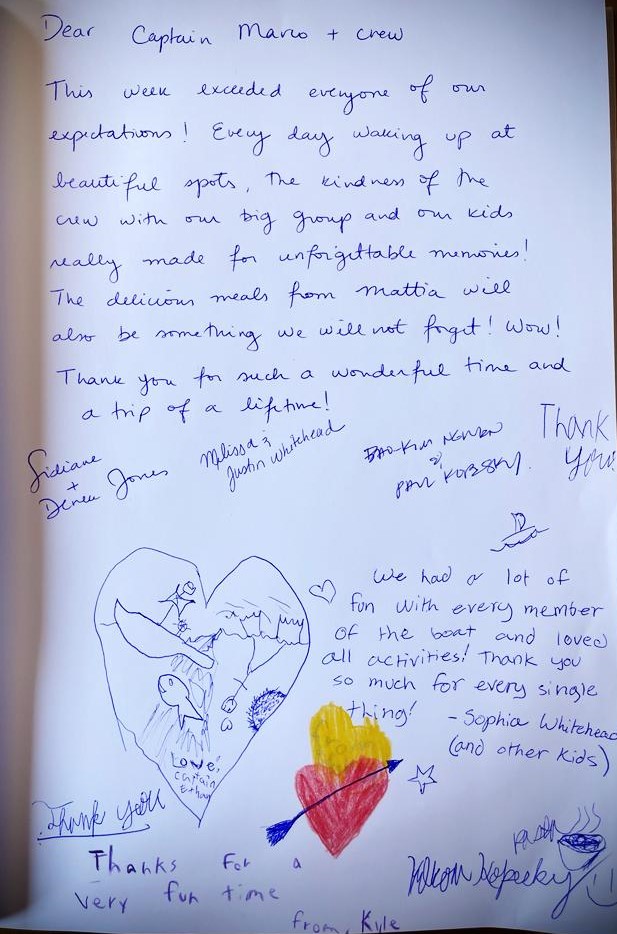 Dear Captain Marco + crew
This week exceeded everyone of our
expectations! Every day waking up at
beautiful spots, the kindness of the
crew with our big group and our kids
really made for unforgettable memories!
The delicious meals from Mattia will
also be something we will not forget! Wow!
Thank you for such a wonderful time and
a trip of a lifetime!
Sidiane
+
Derek Jones
Melissa &
Justin Whitehead
BAO-KIM NGUYEN
&
PAUL KOPESKY.
Thank
You!
We had a lot of
fun with every member
of the boat and loved
all activities! Thank you
so much for every single
thing!
- Sophia Whitehead
(and other kids)
Love,
Captain
Ethan
Thank you
Thanks for a
very fun time
from, Kyle